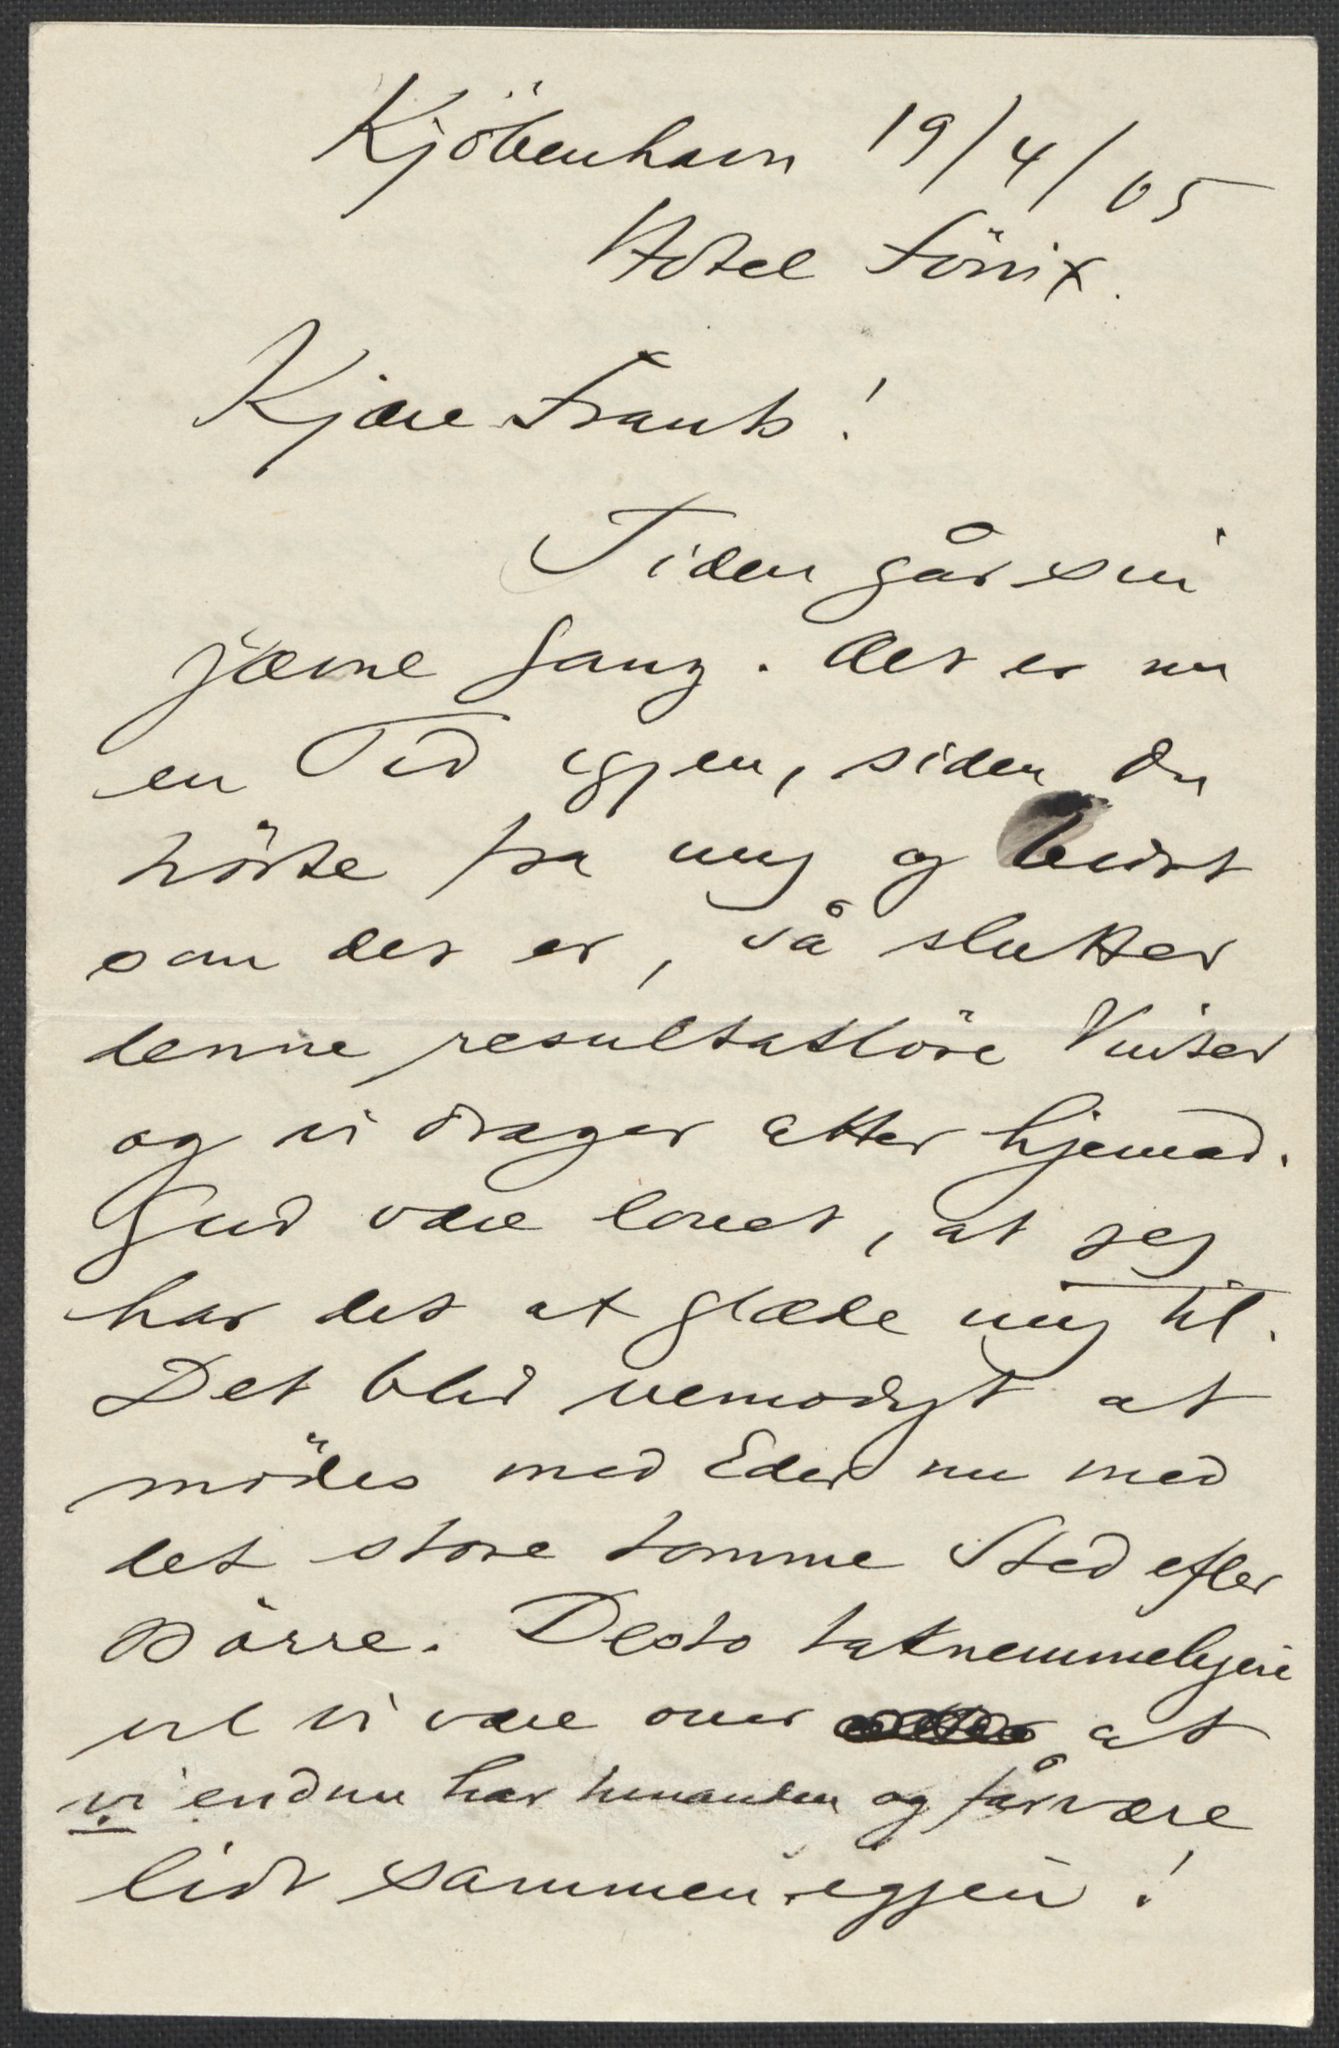 Kjöbenhavn 19/4/05
Hotel Fönix.
Kjære Frants!
Tiden går sin
jævne Gang. Det er nu
en Tid igjen, siden Du
hörte fra mig og
som det er, så slutter
denne resultatlöse Vinter
og vi drager atter hjemad.
Gud være lovet, at jeg
har det at glæde mig til.
Det blir vemodigt at
mödes med Eder nu med
det store tomme Sted efter
Börre. Desto taknemmeligere
vil vi være over at
vi endnu har hinanden og får være
lidt sammen igjen!